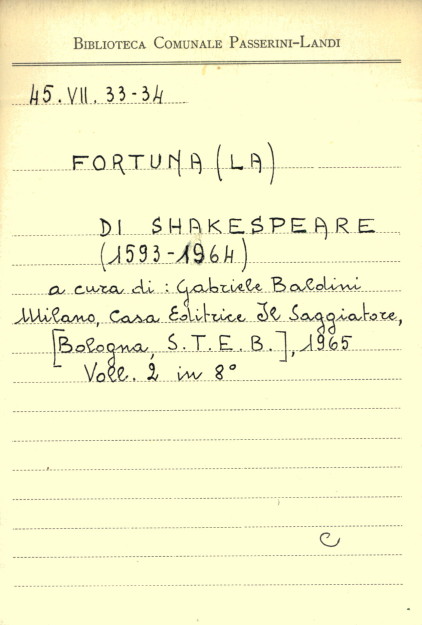 BIBLIOTECA COMUNALE PASSERINI-LANDI
45.VII.33-34
FORTUNA (LA)
DI SHAKESPEARE
(1593-1964)
a cura di : Gabriele Baldini
Milano, Casa Editrice Il Saggiatore,
[Bologna, S.T.E.B.], 1965
Voll. 2 in 8°
C